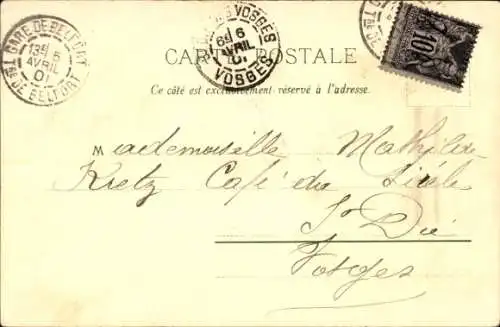 GARE DE BELFORT
13E 6
AVRIL
01
TRE DE BELFORT
VOSGES
6E 6
AVRIL
01
VOSGES
10
CARTE POSTALE
Ce côté est exclusivement réservé à l'adresse.
Mademoiselle Mathilde
Kretz Café du Siècle
St Dié
Vosges